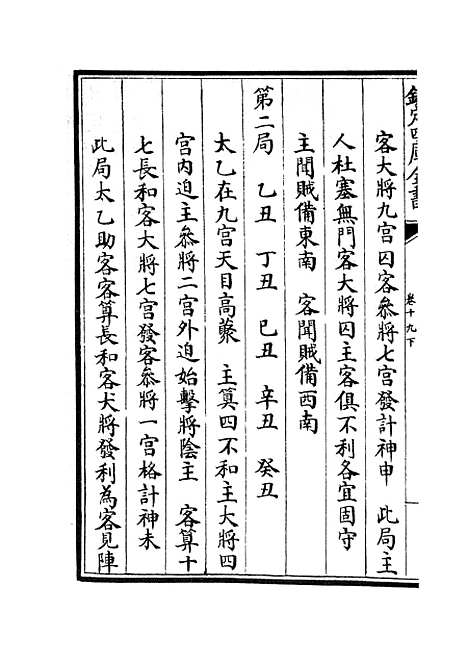 欽定四庫全書
卷十九下
客大將九宮囚客參將七宮發計神申　此局主
人杜塞無門客大將囚主客俱不利各宜固守
主聞賊備東南　客聞賊備西南
第二局　乙丑　丁丑　己丑　辛丑　癸丑
太乙在九宮天目高藂　主算四不和主大將四
宮內迫主參將二宮外迫始擊將陰主　客算十
七長和客大將七宮發客參將一宮格計神未
此局太乙助客客算長和客大將發利為客見陣